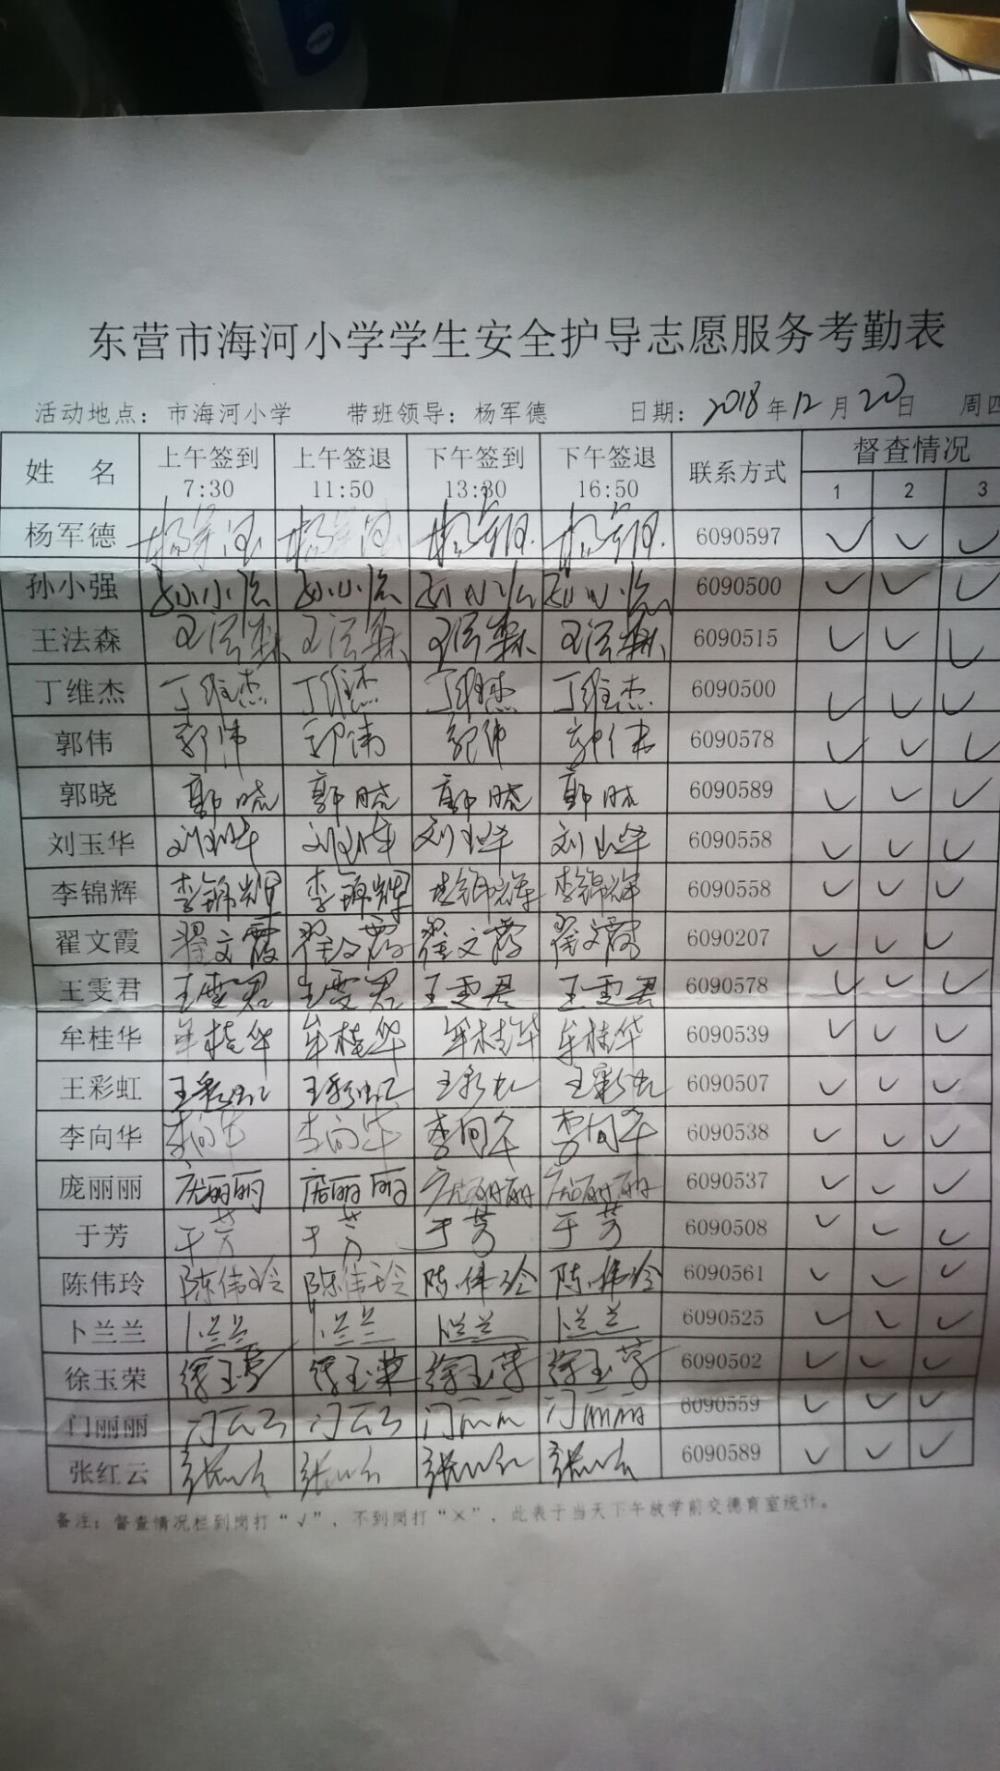 东营市海河小学学生安全护导志愿服务考勤表
活动地点：市海河小学 带班领导：杨军德 日期：2018年12月20日 周四
姓 名 上午签到 7:30 上午签退 11:50 下午签到 13:30 下午签退 16:50 联系方式 督查情况
1 2 3
杨军德 杨军德 杨军德 杨军德 杨军德 6090597 ✓ ✓ ✓
孙小强 孙小强 孙小强 孙小强 孙小强 6090500 ✓ ✓ ✓
王法森 王法森 王法森 王法森 王法森 6090515 ✓ ✓ ✓
丁维杰 丁维杰 丁维杰 丁维杰 丁维杰 6090500 ✓ ✓ ✓
郭伟 郭伟 郭伟 郭伟 郭伟 6090578 ✓ ✓ ✓
郭晓 郭晓 郭晓 郭晓 郭晓 6090589 ✓ ✓ ✓
刘玉华 刘玉华 刘玉华 刘玉华 刘玉华 6090558 ✓ ✓ ✓
李锦辉 李锦辉 李锦辉 李锦辉 李锦辉 6090558 ✓ ✓ ✓
翟文霞 翟文霞 翟文霞 翟文霞 翟文霞 6090207 ✓ ✓ ✓
王雯君 王雯君 王雯君 王雯君 王雯君 6090578 ✓ ✓ ✓
牟桂华 牟桂华 牟桂华 牟桂华 牟桂华 6090539 ✓ ✓ ✓
王彩虹 王彩虹 王彩虹 王彩虹 王彩虹 6090507 ✓ ✓ ✓
李向华 李向华 李向华 李向华 李向华 6090538 ✓ ✓ ✓
庞丽丽 庞丽丽 庞丽丽 庞丽丽 庞丽丽 6090537 ✓ ✓ ✓
于芳 于芳 于芳 于芳 于芳 6090508 ✓ ✓ ✓
陈伟玲 陈伟玲 陈伟玲 陈伟玲 陈伟玲 6090561 ✓ ✓ ✓
卜兰兰 卜兰兰 卜兰兰 卜兰兰 卜兰兰 6090525 ✓ ✓ ✓
徐玉荣 徐玉荣 徐玉荣 徐玉荣 徐玉荣 6090502 ✓ ✓ ✓
门丽丽 门丽丽 门丽丽 门丽丽 门丽丽 6090559 ✓ ✓ ✓
张红云 张红云 张红云 张红云 张红云 6090589 ✓ ✓ ✓
备注：督查情况栏到岗打“√”，不到岗打“×”，此表于当天下午放学前交德育室统计。